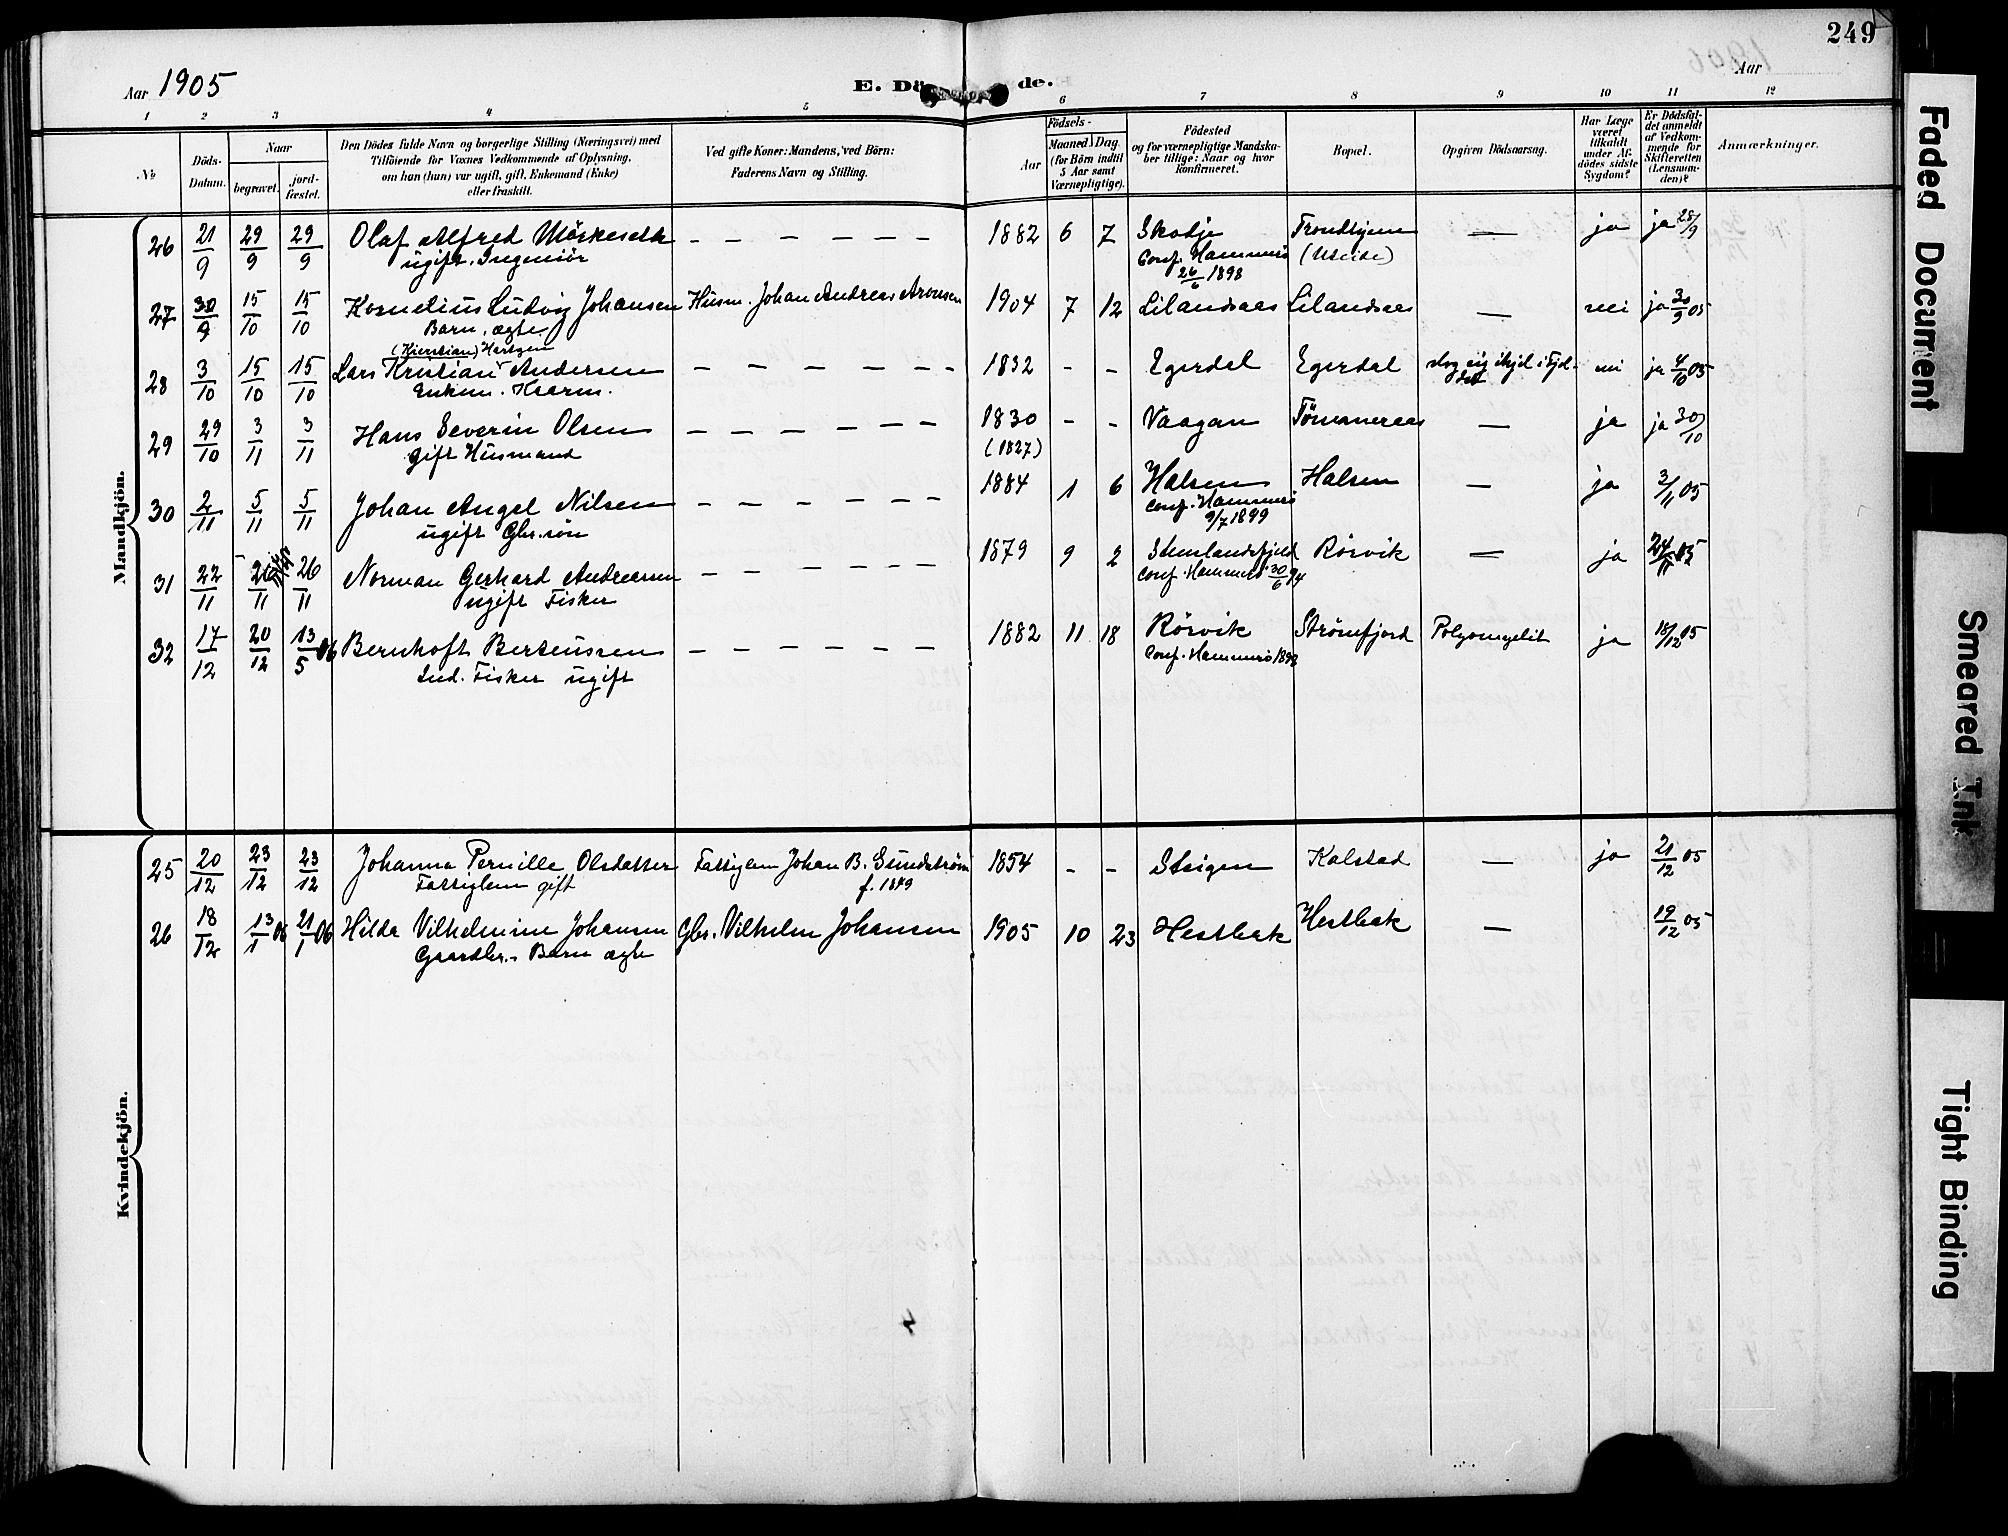 249
Aar 1905
E. Dö de.
Aar
1 2 3 4 5 6 7 8 9 10 11 12
No
Döds-
Datum.
Naar
begravet.
jord-
fæstet.
Den Dödes fulde Navn og borgerlige Stilling (Næringsvei) med
Tilföiende for Voxnes Vedkommende af Oplysning,
om han (hun) var ugift, gift, Enkemand (Enke)
eller fraskilt.
Ved gifte Koner: Mandens, ved Börn:
Faderens Navn og Stilling.
Födsels-
Aar
Maaned Dag
(for Börn indtil
5 Aar samt
Værnepligtige).
Födested
og for værnepligtige Mandska-
ber tillige: Naar og hvor
konfirmeret.
Bopæl.
Opgiven Dödsaarsag.
Har Læge
været
tilkaldt
under Af-
dödes sidste
Sygdom?
Er Dödsfal-
det anmeldt
af Vedkom-
mende for
Skifteretten
(Lensman-
den)?
Anmærkninger.
Mandkjön.
26 21/9 29/9 29/9 Olaf Alfred – – – – – – 1882 6 7 Skodje Trondhjem — ja ja 28/9
ugift. Ingeniör Conf. Hammerö
26/6 1898
27 30/9 15/10 15/10 Kornelius Ludvig Johansen Husm. Johan Andreas Aronsen 1904 7 12 Lilandsaas Lilandsaas — nei ja 30/9 05
Barn, ægte
(Kierstian) Hartgen
28 3/10 15/10 15/10 Lars Kristian Andersen – – – – – – 1832 - - Egerdal Egerdal slog sig ihjel i Fjel- nei ja 4/10 05
Enkem. det
29 29/10 3/11 3/11 Hans Severin Olsen – – – – – – 1830 - - Vaagan — ja ja 30/10
gift Husmand (1827)
30 2/11 5/11 5/11 Johan Angel Nilsen – – – – – – 1884 1 6 Halsen Halsen — ja 3/11 05
ugift Gbr. søn Conf. Hammerö
9/7 1899
31 22/11 26/11 26/11 Norman Gerhard Andreassen – – – – – – 1879 9 2 Rörvik — ja 24/11 05
ugift Fisker Conf. Hammerö 30/6 94
32 17/12 20/12 13/5 06 Bernhoft Berteussen – – – – – – 1882 11 18 Rörvik Strömfjord Polyomyelit ja 18/12 05
Ind. Fisker ugift Conf. Hammerö
Kvindekjön.
25 20/12 23/12 23/12 Johanna Pernille Olsdatter Fattiglem Johan B. Sundström 1854 - - Steigen Kalstad — ja 21/12 05
Fattiglem gift f. 1849
26 18/12 13/1 06 21/1 06 Hilda Vilhelmine Johansen Gbr. Vilhelm Johansen 1905 10 23 Hestbak Hestbak — 19/12 05
Gaardbr. Barn ægte
Faded Document
Smeared Ink
Tight Binding